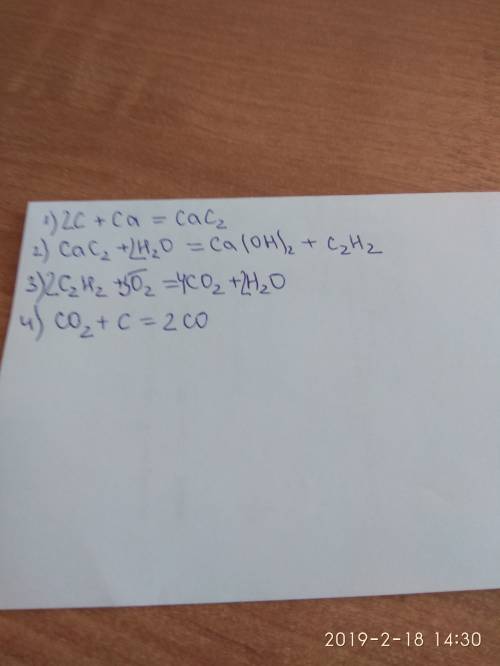 1) 2C + Ca = CaC₂
2) CaC₂ + 2H₂O = Ca(OH)₂ + C₂H₂
3) 2C₂H₂ + 5O₂ = 4CO₂ + 2H₂O
4) CO₂ + C = 2CO
2019-2-18 14:30